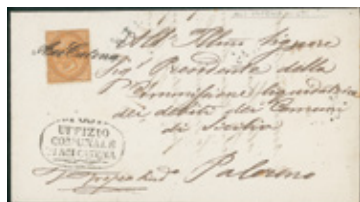 Aci Catena
All' Illmo Signore
Sigr Presidente della
Commissione liquidatrice
dei debiti dei Comuni
di Sicilia
UFFIZIO
COMUNALE
ACI CATENA
Palermo